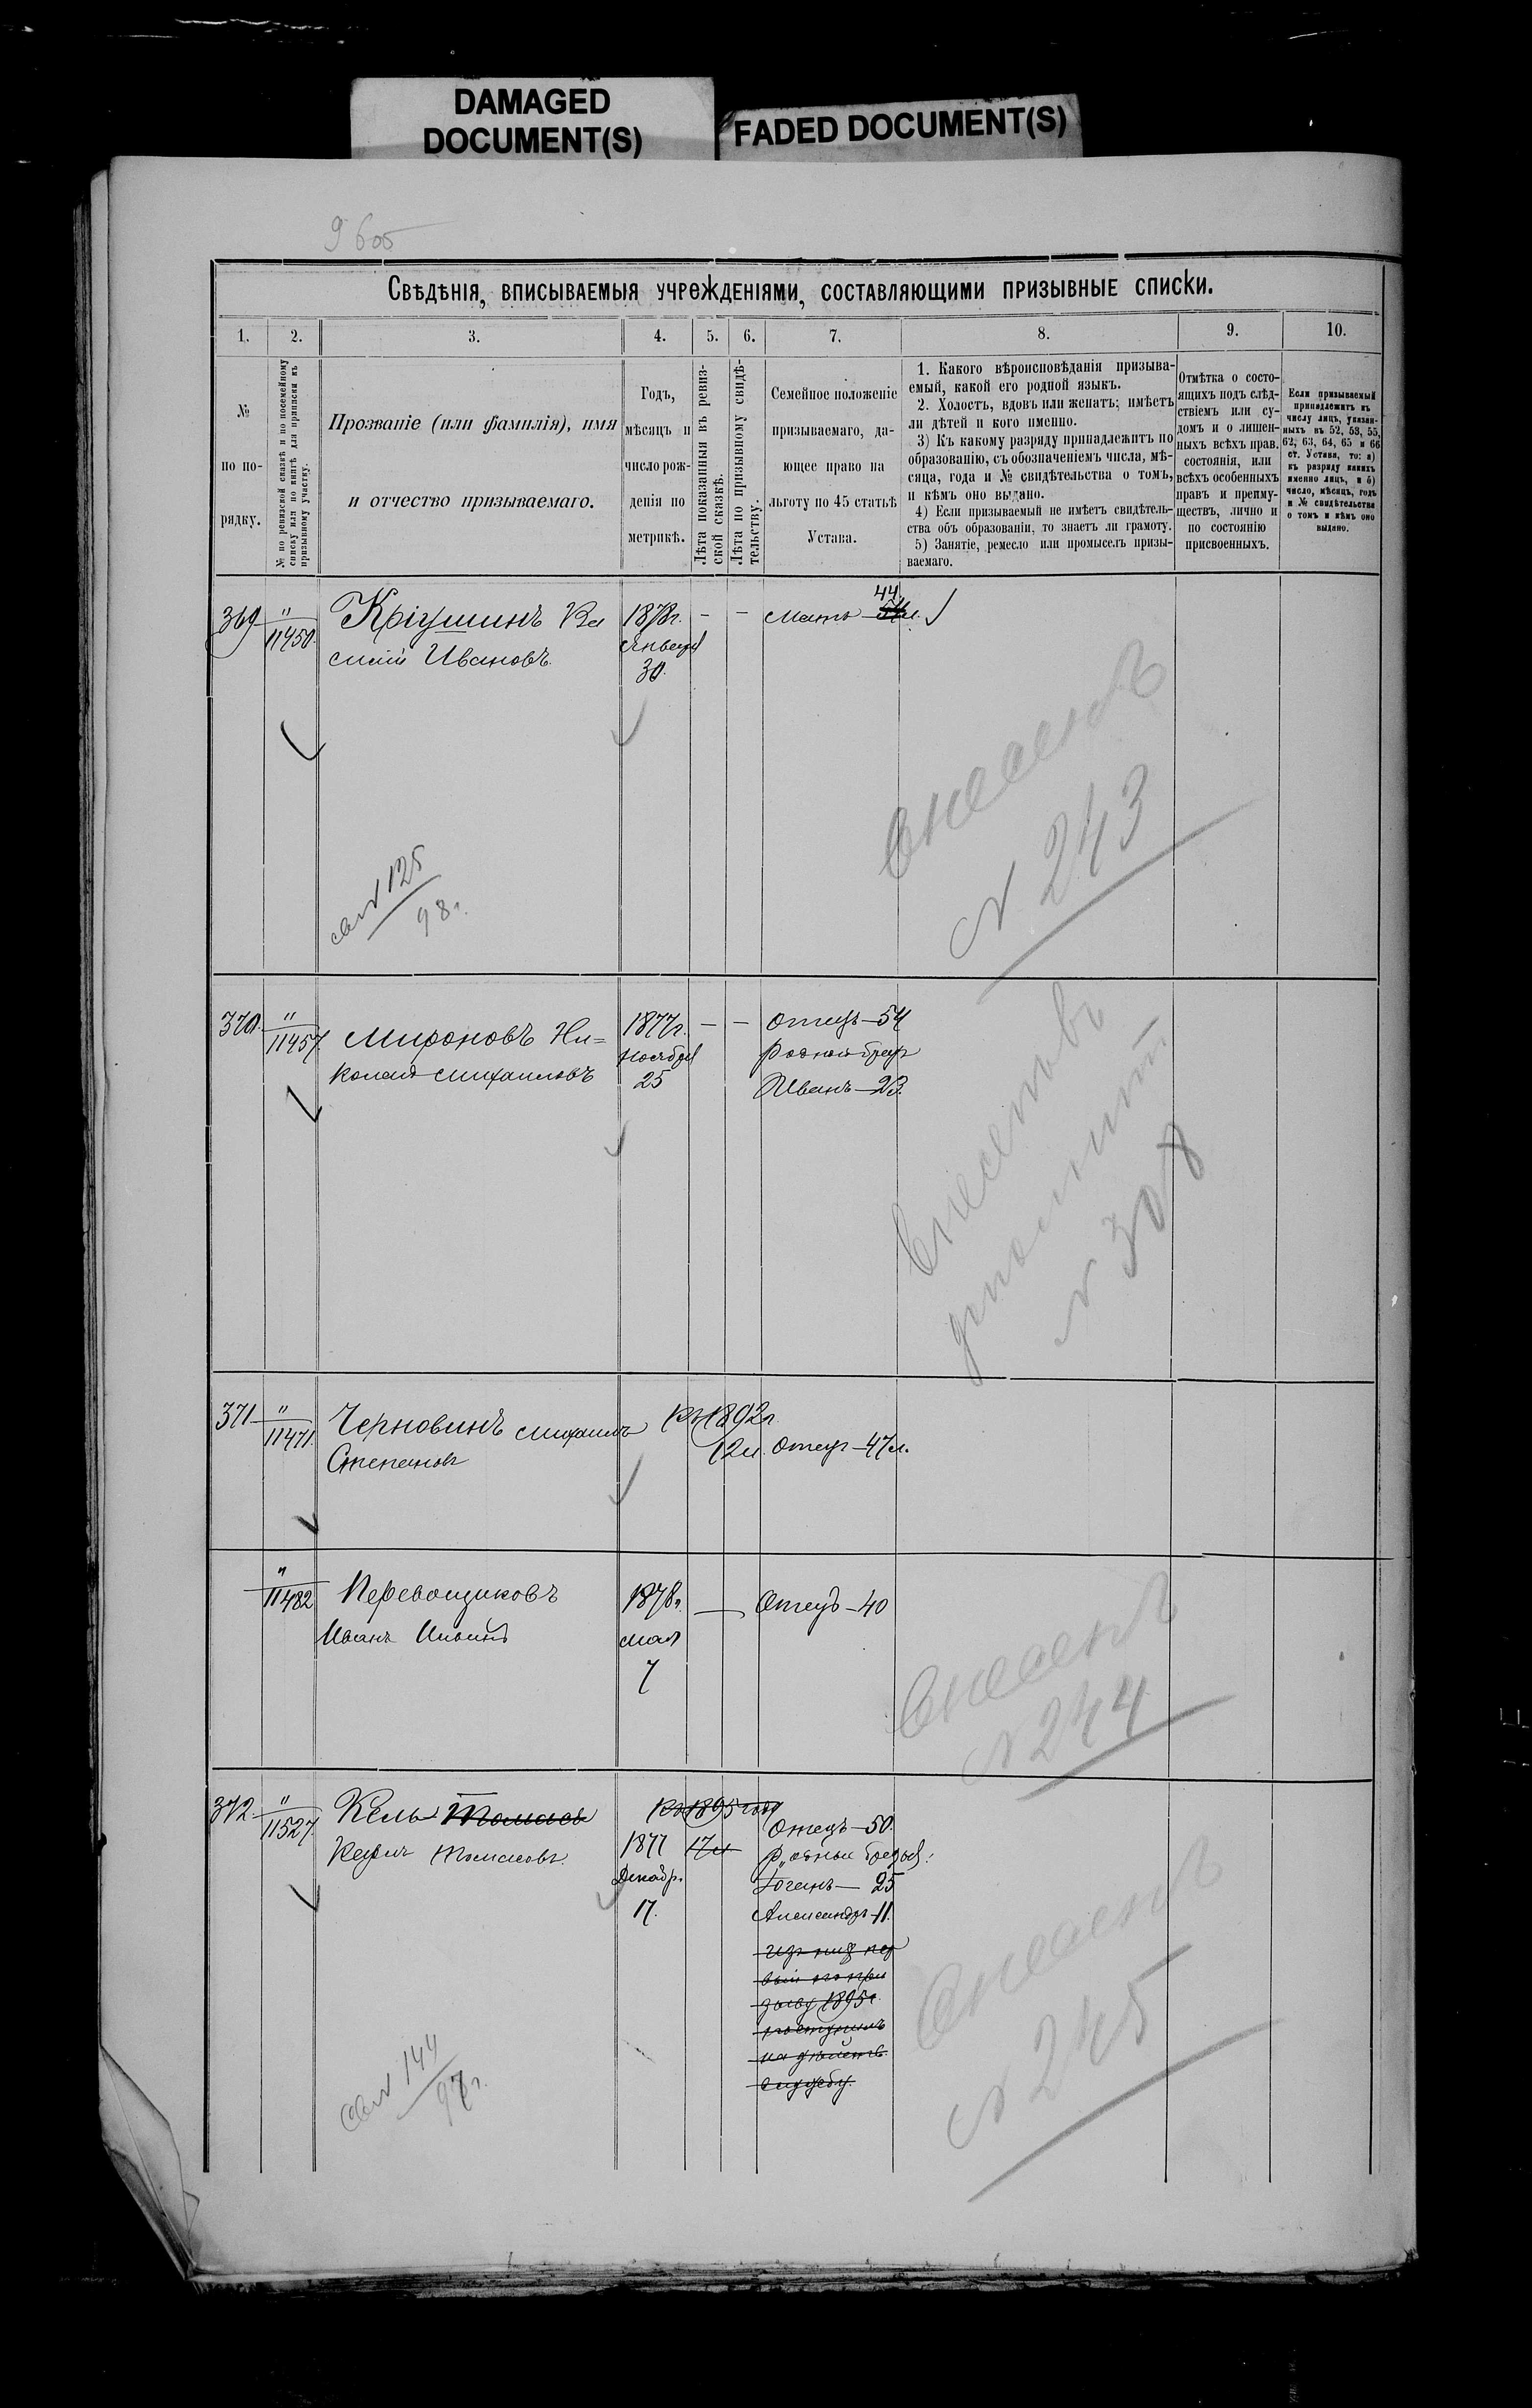 DAMAGED
DOCUMENT(S)
FADED DOCUMENT(S)
9605
Свѣдѣнія, вписываемыя учрежденіями, составляющими призывные списки.
1. 2. 3. 4. 5. 6. 7. 8. 9. 10.
№
по по-
рядку.
№ по ревизской сказкѣ и по посемейному
списку или по книгѣ для приписки къ
призывному участку.
Прозваніе (или фамилія), имя
и отчество призываемаго.
Годъ,
мѣсяцъ и
число рож-
денія по
метрикѣ.
Лѣта показанныя въ ревиз-
ской сказкѣ.
Лѣта по призывному свидѣ-
тельству.
Семейное положеніе
призываемаго, да-
ющее право на
льготу по 45 статьѣ
Устава.
1. Какого вѣроисповѣданія призыва-
емый, какой его родной языкъ.
2. Холостъ, вдовъ или женатъ; имѣетъ
ли дѣтей и кого именно.
3) Къ какому разряду принадлежитъ по
образованію, съ обозначеніемъ числа, мѣ-
сяца, года и № свидѣтельства о томъ,
и кѣмъ оно выдано.
4) Если призываемый не имѣетъ свидѣтель-
ства объ образованіи, то знаетъ ли грамоту.
5) Занятіе, ремесло или промыселъ призы-
ваемаго.
Отмѣтка о состо-
ящихъ подъ слѣд-
ствіемъ или су-
домъ и о лишен-
ныхъ всѣхъ прав.
состоянія, или
всѣхъ особенныхъ
правъ и преиму-
ществъ, лично и
по состоянію
присвоенныхъ.
Если призываемый
принадлежитъ къ
числу лицъ, указан-
ныхъ въ 52, 53, 55,
62, 63, 64, 65 и 66
ст. Устава, то: а)
къ разряду какихъ
именно лицъ, и б)
число, мѣсяцъ, годъ
и № свидѣтельства
о томъ и кѣмъ оно
выдано.
369 " 11450. Кріушинъ Ва
силій Ивановъ.
1878г. - - Мать 44
Января
30.
внесенъ
№ 243
св № 125
98г.
370. " 11457. Мироновъ Ни=
колай Михаиловъ
1877г. - - Отецъ-54
Ноября
25
родной братъ
Иванъ-23.
№ 308
371 " 11471. Черновинъ Михаилъ
Степановъ
Въ 1892г.
12л. Отецъ-47л.
" 11482 Перевощиковъ
Иванъ
1878г. Отецъ-40
Мая
7
Внесенъ
№ 244
372 " 11527. Кель Томасъ
Томасовъ.
Въ 1895 году
1877 17л
Декабр.
17.
Отецъ-50.
родные братья:
Юганъ-25
Александръ-11.
изъ них пер
вый по при
зыву 1895г.
поступилъ
на
службу.
Внесенъ
№ 245
св № 144
97г.